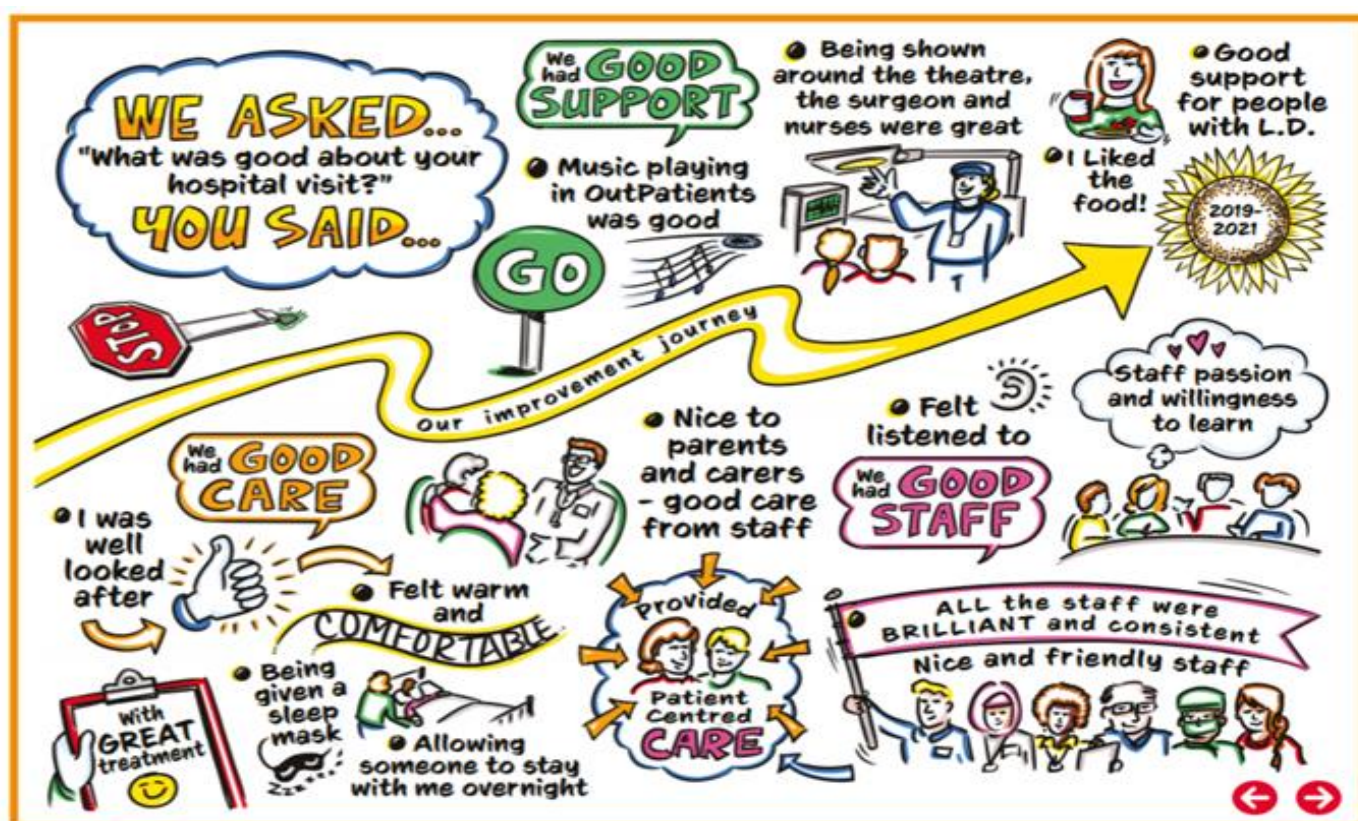 WE ASKED...
"What was good about your
hospital visit?"
YOU SAID...
We had GOOD
SUPPORT
Music playing
in OutPatients
was good
Being shown
around the theatre,
the surgeon and
nurses were great
I Liked
the
food!
Good
support
for people
with L.D.
2019-
2021
STOP
GO
Our improvement journey
We had GOOD
CARE
I was
well
looked
after
With
GREAT
treatment
Felt warm
and
COMFORTABLE
Being
given a
sleep
mask
Zzzzzz
Allowing
someone to stay
with me overnight
Nice to
parents
and carers
- good care
from staff
Provided
Patient
Centred
CARE
Felt
listened to
We had GOOD
STAFF
Staff passion
and willingness
to learn
ALL the staff were
BRILLIANT and consistent
Nice and friendly staff